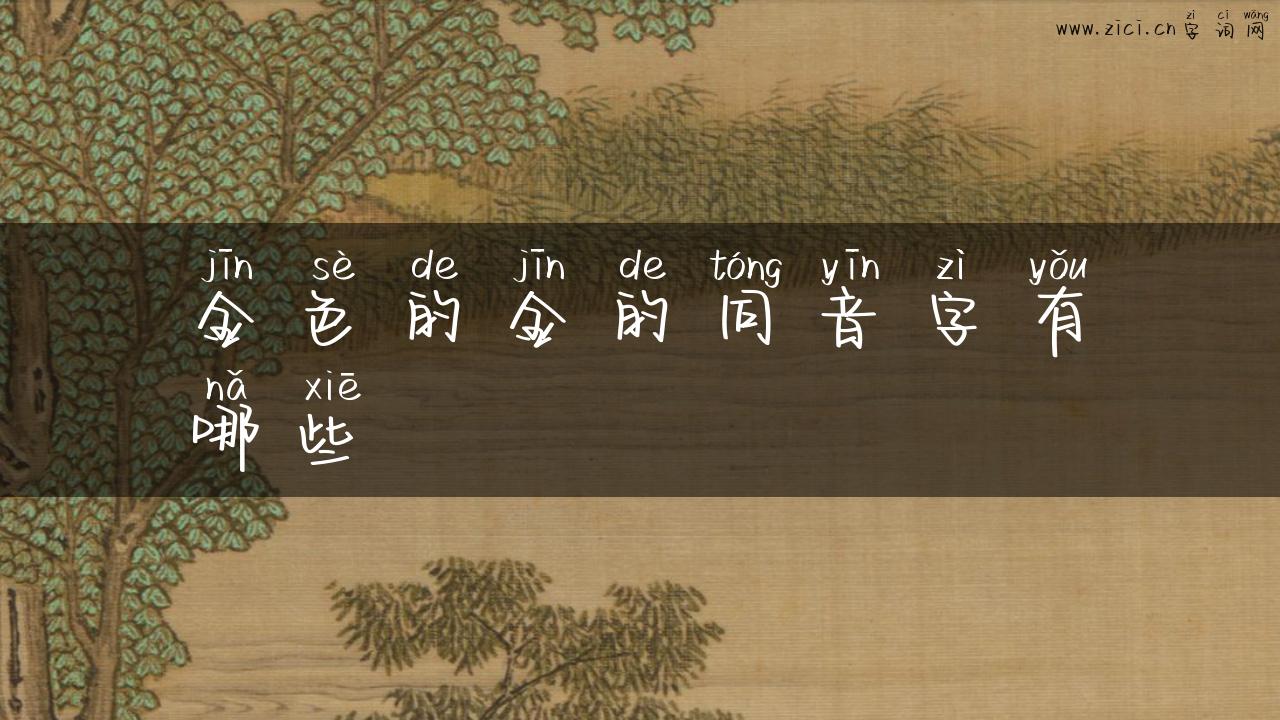 zì cí wǎng
www.zici.cn 字 词 网
jīn sè de jīn de tóng yīn zì yǒu
金 色 的 金 的 同 音 字 有
nǎ xiē
哪 些